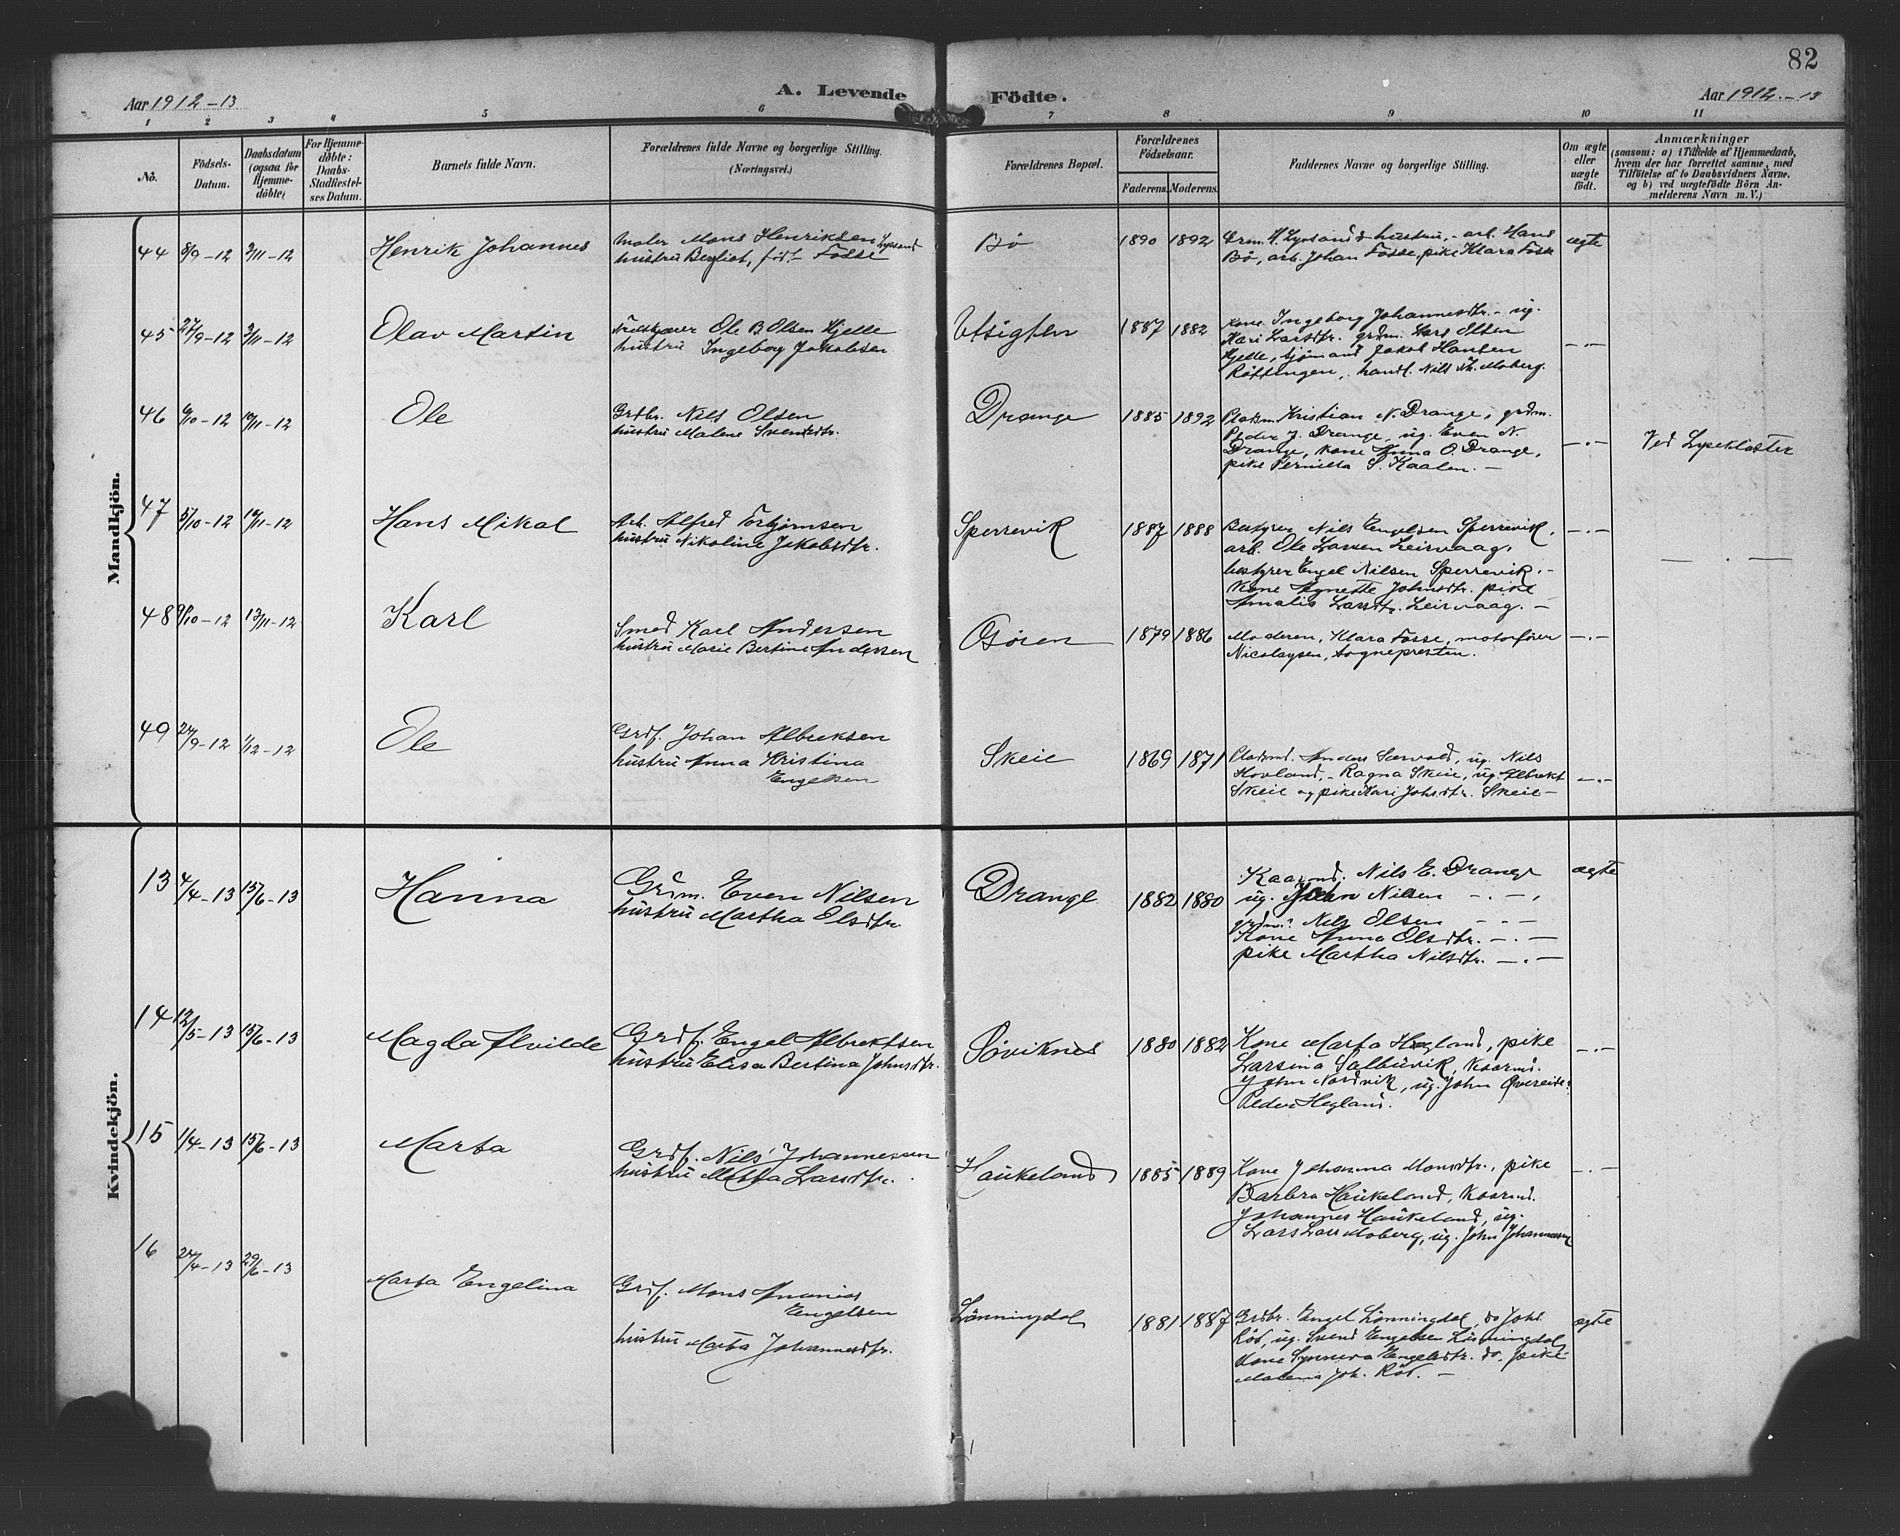 82
Aar 1912-13
A. Levende Födte.
Aar 1912-13
1 2 3 4 5 6 7 8 9 10 11
No.
Födsels-Datum.
Daabsdatum (ogsaa for Hjemme-döbte)
For Hjemme-döbte: Daabs-Stadfæstel-ses Datum.
Barnets fulde Navn.
Forældrenes fulde Navne og borgerlige Stilling. (Næringsvei.)
Forældrenes Bopæl.
Forældrenes Födselsaar.
Faderens. Moderens.
Faddernes Navne og borgerlige Stilling.
Om ægte eller uægte födt.
Anmærkninger
(saasom: a) i Tilfælde af Hjemmedaab,
hvem der har forrettet samme, med
Tilföielse af to Daabsvidners Navne,
og b) ved uægtefödte Börn An-
melderens Navn m. V.)
Mandkjön.
44 8/9-12 3/11-12 Henrik Johannes
Maler Mons Henriksen Lysand
hustru Bergliot, født Fosse
Bø 1890 1892
Grm. H. Lysand & hustru, - arb. Hans
Bö, arb. Johan Fosse, pike Klara Fosse
ægte
45 27/9-12 3/11-12 Olav Martin
Ole B. Olsen Hjelle
hustru Ingeborg Jakobsen
Utsigten 1887 1882
Kone Ingeborg Johannesdtr. - ug.
Kari Larsdtr. grdm. Lars Olsen
Hjelle, sjömand Jakob Hansen
Röttingen, handl. Nils M. Moberg.
-"-
46 6/10-12 10/11-12 Ole
Grdbr. Nils Olsen
hustru Malene Svendsdtr.
Drange 1885 1892
Pladsm. Kristian N. Drange, grdm.
Peder J. Drange, ug. Even N.
Drange, kone Anna O. Drange,
pike Pernilla S. Kaalen. -
-"-
Ved Lysekloster
47 5/10-12 10/11-12 Hans Mikal
Arb. Alfred Torbjørnsen
hustru Nikoline Jakobsdtr.
Sperrevik 1887 1888
Bestyrer Nils Engelsen Sperrevik,
arb. Ole Larsen Leirvaag,
bestyrer Engel Nilsen Sperrevik, -
Kone Agnette Johnsdtr. pike
Amalia Larsdtr. Leirvaag. -
-"-
-"-
48 9/10-12 13/11-12 Karl
Smed Karl Andersen
hustru Marie Bertine Andersen
Osören 1879 1886
Moderen, Klara Fosse, motorförer
Nicolaysen, sognepresten.
-"-
49 24/9-12 1/12-12 Ole
Grdf. Johan Albrektsen
hustru Anna Kristina
Engelsen
Skeie 1869 1871
Pladsmd. Anders Sørvold, ug. Nils
Hovland, - Ragna Skeie, ug. Albrekt
Skeie og pike Kari Johsdtr. Skeie -
-"-
Kvindekjön.
13 4/4-13 15/6-13 Hanna
Grdm. Even Nilsen
hustru Martha Olsdtr.
Drange 1882 1880
Kaarmd. Nils E. Drange
ug. John Nilsen -"-,
grdm. Nils Olsen -"-
Kone Anna Olsdtr. -"-
pike Martha Nilsdtr. -"-
ægte
14 12/5-13 15/6-13 Magda Alvilde
Grdf. Engel Albrektsen
hustru Elisa Bertina Johnsdtr.
Søviknes 1880 1882
Kone Marta Hegland, pike
Larsina Salbuvik, Kaarmd.
John Nordvik, ug. John Øvereide
Peder Hegland.
-"-
15 1/4-13 15/6-13 Marta
Grdf. Nils Johannessen
hustru Marta Larsdtr.
Haukeland 1885 1889
Kone Johanna Monsdtr., pike
Barbra Haukeland, Kaarmd.
Johannes Haukeland, ug.
Lars Lars Moberg, ug. John Johannessen
-"-
16 24/4-13 29/6-13 Marta Engelina
Grdf. Mons Ananias
Engelsen
hustru Marta Johannesdtr.
Lønningdal 1881 1887
Grdbr. Engel Lønningdal, do Joh.
Röd, ug. Svend Engelsen Lønningdal,
Kone Synneva Engelsdtr. do. pike
Malena Joh. Röd. -
ægte